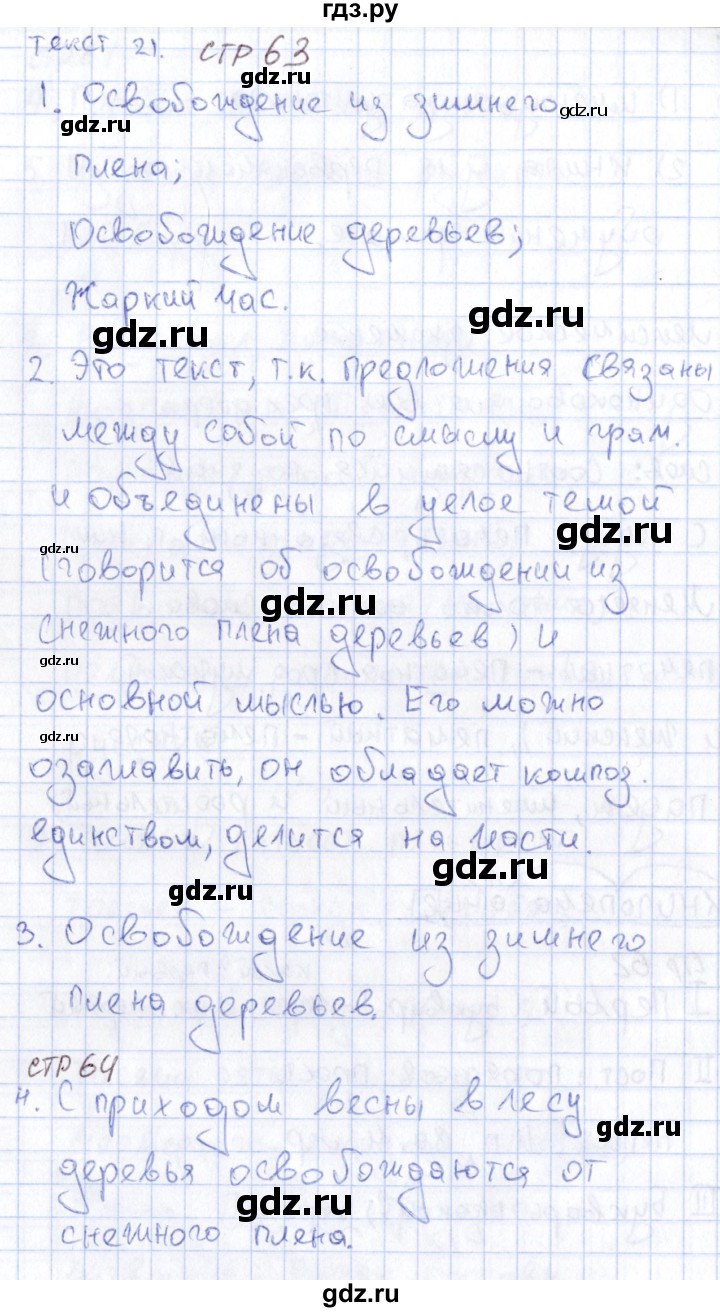 гдз.ру
текст 21. стр 63
gdz.ru
1. Освобождение из зимнего
gdz.ru
gdz.ru
плена;
Освобождение деревьев;
Жаркий час.
gdz.ru
gdz.ru
2. Это текст, т.к. предложения связаны
между собой по смыслу и грам.
и объединены в целое темой
gdz.ru
gdz.ru
(говорится об освобождении из
gdz.ru
снежного плена деревьев) и
gdz.ru
основной мыслью. Его можно
gdz.ru
озаглавить, он обладает композ.
единством, делится на части.
gdz.ru
gdz.ru
3. Освобождение из зимнего
плена деревьев.
стр 64
4. С приходом весны в лесу
gdz.ru
деревья освобождаются от
gdz.ru
снежного плена.
gdz.ru